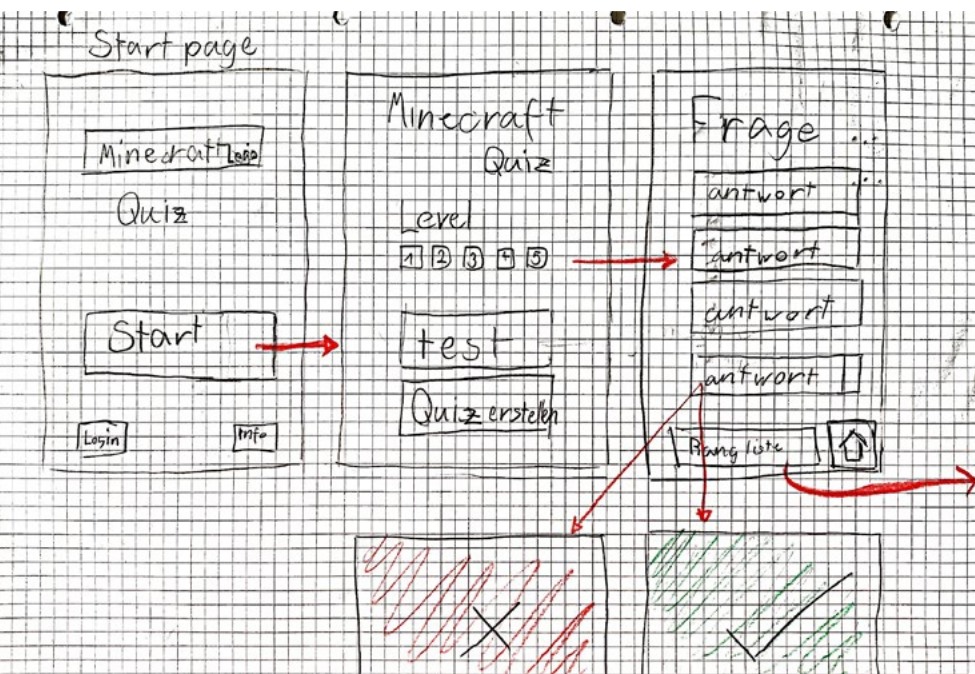 Start page
Minecraft Logo
Quiz
Start
Login
Info
Minecraft
Quiz
Level
1 2 3 4 5
test
Quiz erstellen
Frage
antwort
antwort
antwort
antwort
Rangliste